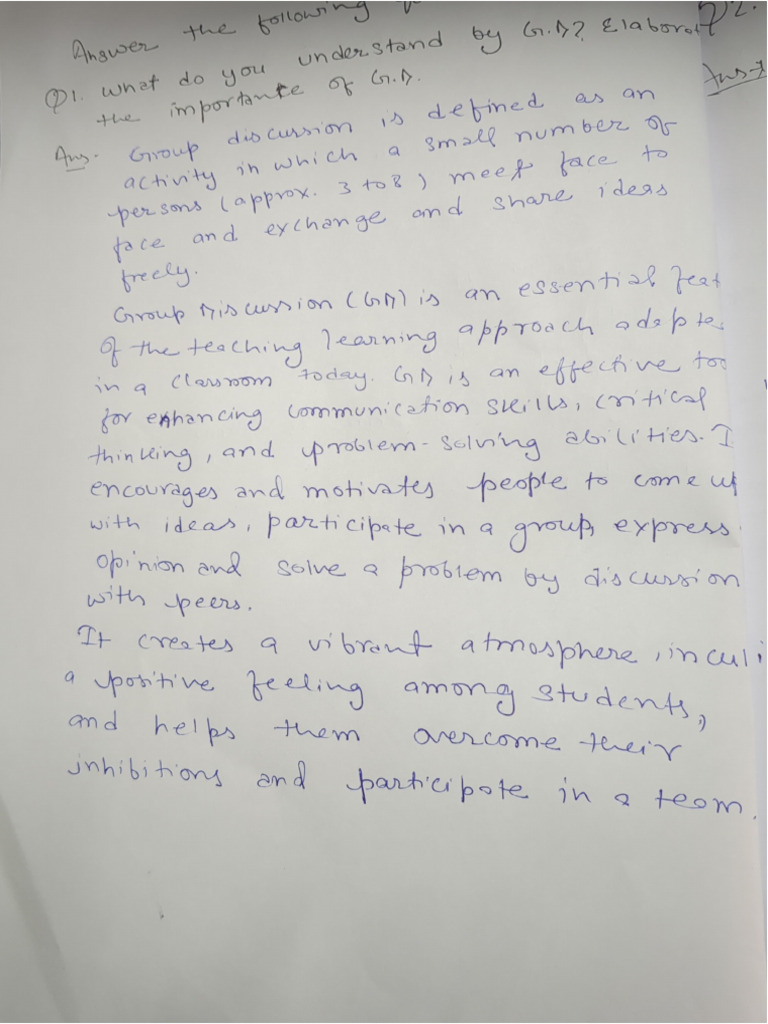 Answer the following
Q1. What do you understand by G.D? Elaborat
the importance of G.D.
Ans. Group discussion is defined as an
activity in which a small number of
persons (approx. 3 to 8) meet face to
face and exchange and share ideas
freely.
Group Discussion (GD) is an essential feat
of the teaching learning approach adopte
in a classroom today. GD is an effective too
for enhancing communication skills, critical
thinking, and problem-solving abilities. I
encourages and motivates people to come up
with ideas, participate in a group, express
opinion and solve a problem by discussion
with peers.
It creates a vibrant atmosphere, inculi
a positive feeling among students,
and helps them overcome their
inhibitions and participate in a team.
Q2.
Ans→